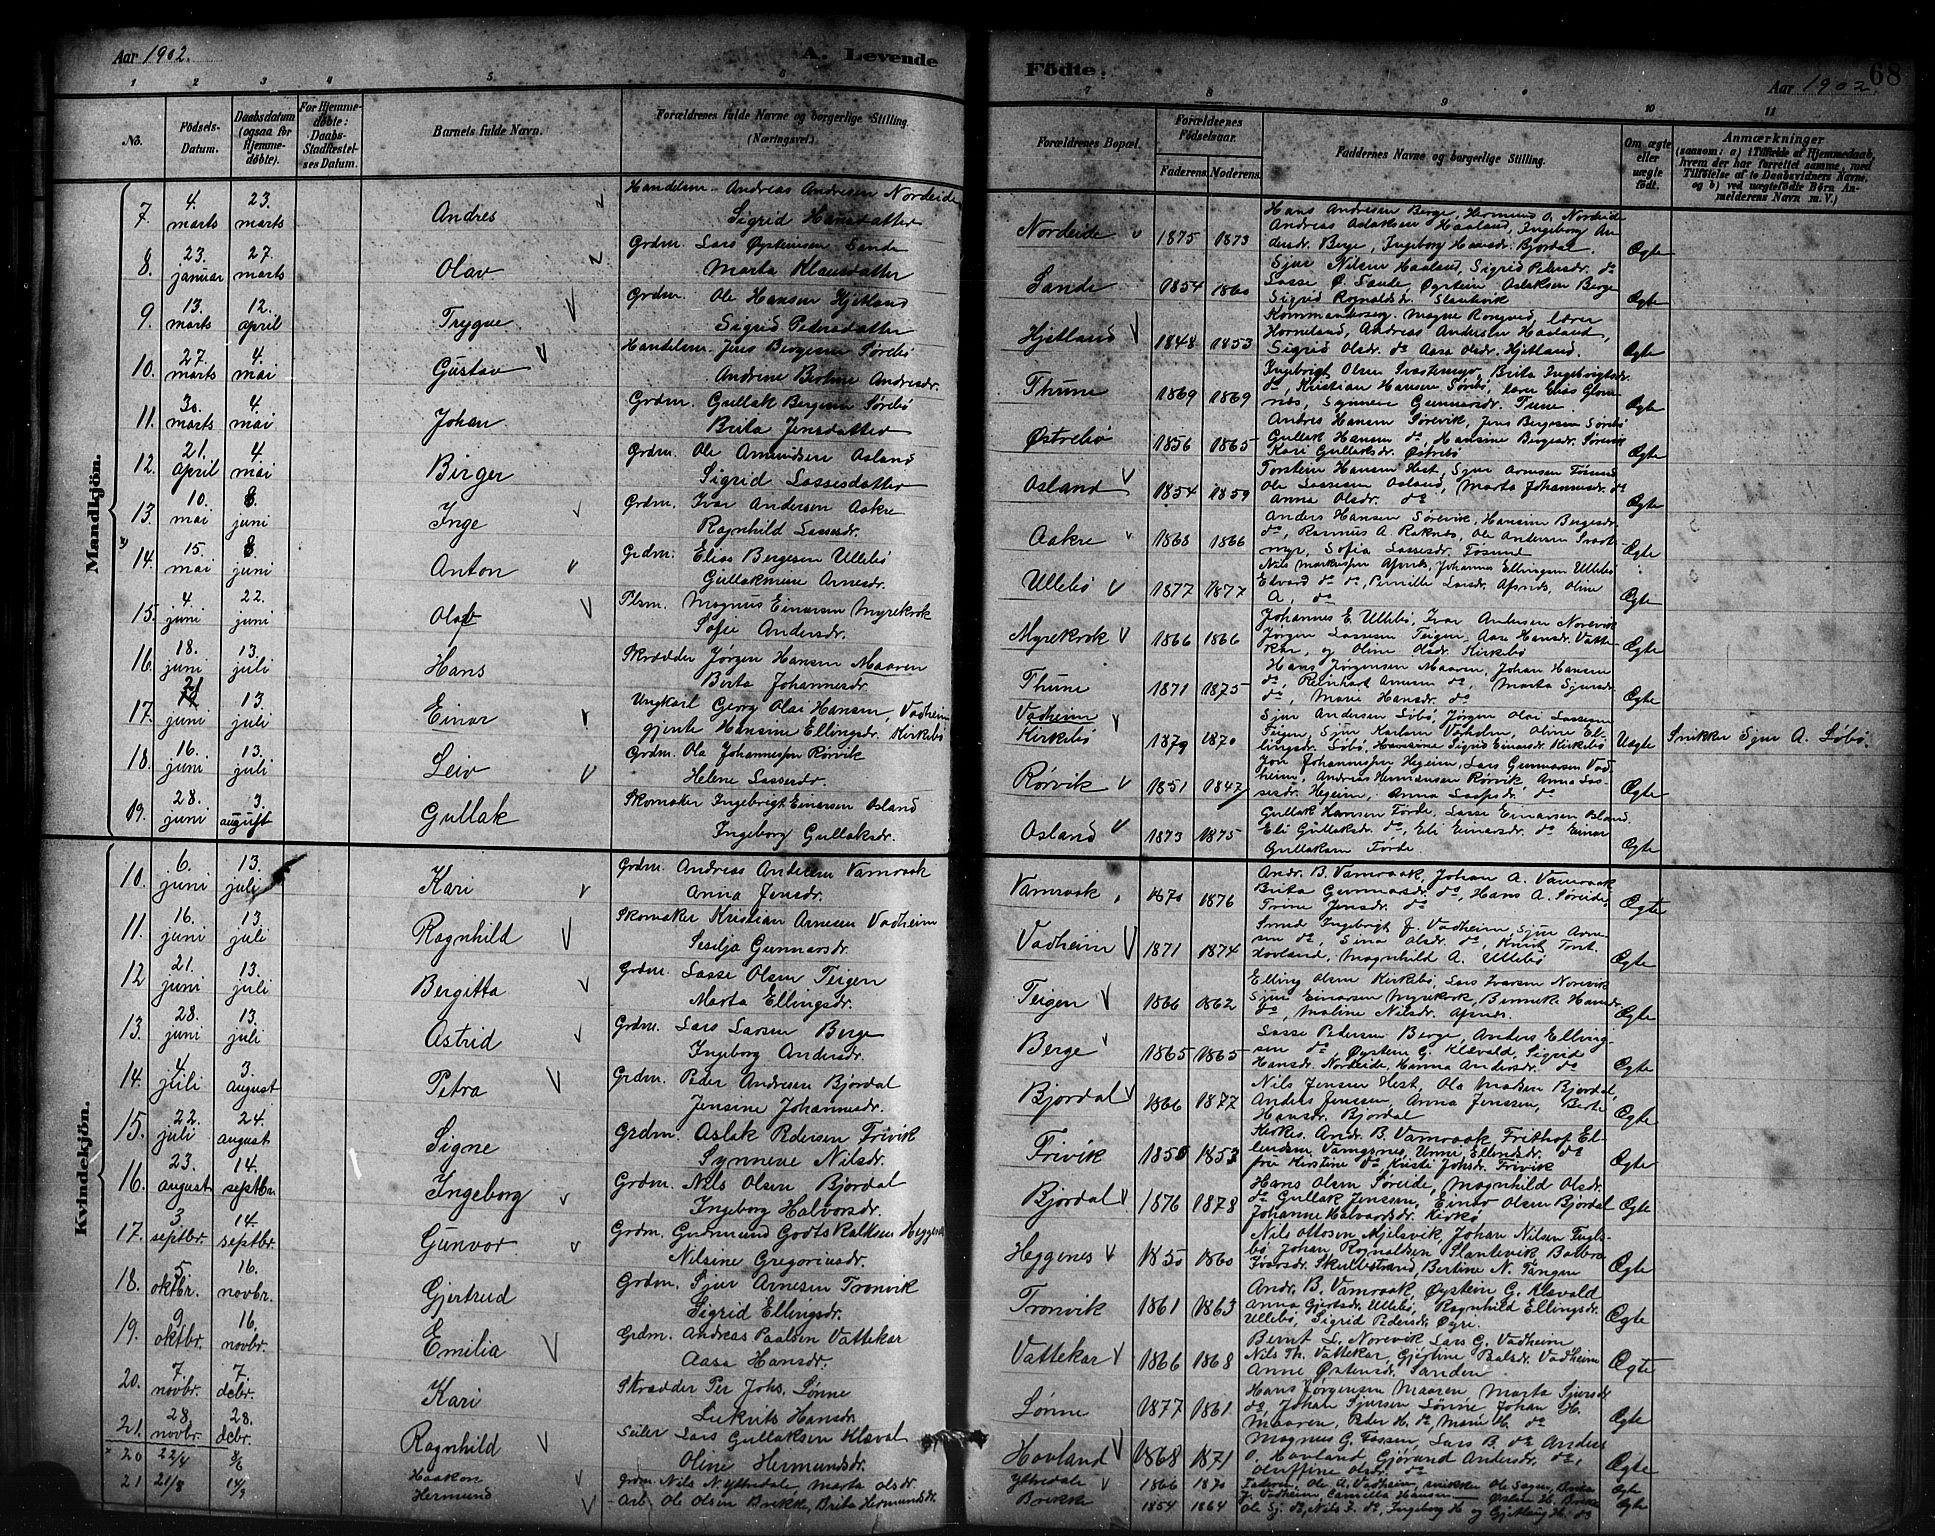 Aar 1902.
A. Levende
Födte.
Aar 1902.
68
1 2 3 4 5 6
7 8 9 10 11
No.
Födsels-Datum.
Daabsdatum (ogsaa for Hjemme-döbte).
For Hjemme-döbte: Daabs-Stadfæstel-ses Datum.
Barnets fulde Navn.
Forældrenes fulde Navne og borgerlige Stilling (Næringsvei).
Forældrenes Bopæl.
Forældrenes Födselsaar.
Faderens Moderens
Faddernes Navne og borgerlige Stilling.
Om ægte eller uægte födt.
Anmærkninger
(saasom: a) i Tilfælde af Hjemmedaab, hvem der har forrettet samme, med Tilföielse af to Daabsvidners Navne, og b) ved uægtefödte Börn An-melderens Navn m. V.)
Mandkjön.
7. 4. marts 23. marts Andres Handelsm. Andreas Andresen Nordeide
Sigrid Hansdatter
Nordeide 1875 1873 Hans Andresen Berge, Hermund O. Nordeide
Andreas Aslaksen Haaland, Ingeborg An-
dersdr. Berge, Ingeborg Hansdr. Bjordal Ægte
8. 23. januar 27. marts Olav Grdm. Lars Øystensen Sande
Marta Klausdatter
Sande 1854 1860 Sjur Nilsen Haaland, Sigrid Petersdr. do
Lasse Ø. Sande, Øystein Aslaksen Berge
Sigrid Rognaldsdr. Slautevik Ægte
9. 13. marts 12. april Trygve Grdm. Ole Hansen Hjetland
Sigrid Pedersdatter
Hjetland 1848 1853 Magne Rongved, lærer
Horneland, Andreas Andersen Haaland,
Sigrid Olsdr. do Aasa Olsdr. Hjetland. Ægte
10. 27. marts 4. mai Gustav Handelsm. Jens Bergesen Sørebø
Andrine Bertine Andresdr.
Thune 1869 1869 Ingebrigt Olsen Brita Ingebrigtsdr.
do, Kristian Hansen Sørebø, lærer Elias
Synneve Gunnarsdr. Tune Ægte
11. 30. marts 4. mai Johan Grdm. Gullak Bergesen Sørebø
Brita Jensdatter
Østrebø 1856 1865 Andres Hansen Sørevik, Jens Bergesen Sørebø
Gullak Hansen do, Hansine Birgesdr. Sørevik
Kari Gullaksdr. Østrebø Ægte
12. 21. april 4. mai Birger Grdm. Ole Amundsen Osland
Sigrid Lassesdatter
Osland 1854 1859 Torstein Hansen Hest, Sjur Arnesen
Ole Lassesen Osland, Marta Johannesdr. do
Anna Olsdr. do Ægte
13. 10. mai 8. juni Inge Grdm. Ivar Andersen Aakre
Ragnhild Lassesdr.
Aakre 1868 1866 Anders Hansen Sørevik, Hansine Bergesdr.
do, Rasmus A. Raknes, Ole Andersen
Sofia Lassesdr. Ægte
14. 15. mai 8. juni Anton Grdm. Elias Bergesen Ullebø
Gullakmine Arnesdr.
Ullebø 1877 1877 Nils Markussen Johannes Ellingsen Ullebø
Edvard do do, Pernille Larsdr. Oline
A. do Ægte
15. 4. juni 22. juni Olav Plsm. Magnus Einarsen Myrekrok
Sofie Andersdr.
Myrekrok 1866 1866 Johannes E. Ullebø, Ivar Andersen Norevik
Jørgen Lassesen Teigen, Aase Hansdr. Vatte-
kar, og Oline Olsdr. Kirkebø Ægte
16. 18. juni 13. juli Hans Skrædder Jørgen Hansen Maaren
Birta Johannesdr.
Thune 1871 1875 Hans Jørgensen Maaren, Johan Hansen
do, Reinhart Arnesen do, Marta Sjursdr.
do, Marie Hansdr. do Ægte
17. 21 juni 13. juli Einar Ungkarl Georg Olai Hansen, Vadheim
gjente Hansine Ellingsdr. Kirkebø
Vadheim Kirkebø 1879 1870 Sjur Andersen Løbø, Jørgen Olai Lassesen
Teigen, Sjur Karlsen Vaholm, Oline El-
lingsdr. Løbø, Hansine Sigrid Einarsdr. Kirkebø Uægte Snikker Sjur A. Løbø.
18. 16. juni 13. juli Leiv Grdm. Ola Johannessen Rörvik
Helene Lassesdr.
Rörvik 1851 1847 Jon Johannessen Hegeim, Lars Gunnarsen Vad-
heim, Andreas Hermansen Rörvik, Anna Las-
sesdr. Hegeim, Anna Lassesdr. do Ægte
19. 28. juni 3. august Gullak Skomaker Ingebrigt Einarsen Osland
Ingeborg Gullaksdr.
Osland 1873 1875 Gullak Hansen Førde, Lasse Einarsen Osland,
Eli Gullaksdr. do, Eli Einarsdr. do Einar
Gullaksen Førde. Ægte
Kvindekjön.
10. 6. juni 13. juli Kari Grdm. Andreas Andersen Vamraak
Anna Jensdr.
Vamraak 1870 1876 Andr. B. Vamraak, Johan A. Vamraak
Brita Gunnarsdr. do, Hans A. Søreide
Trine Jensdr. do Ægte
11. 16. juni 13. juli Ragnhild Skomaker Kristian Arnesen Vadheim
Sesilja Gunnarsdr.
Vadheim 1871 1874 Smed Ingebrigt J. Vadheim, Sjur Arne-
sen do, Sina Olsdr. do, Knut
Hovland, Magnhild A. Ullebø Ægte
12 21. juni 13. juli Bergitta Grdm. Lasse Olsen Teigen
Marta Ellingsdr.
Teigen 1866 1862 Elling Olsen Kirkebø, Lars Ivarsen Norevik
Sjur Einarsen Myrekrok, Hansdr.
do, Maline Nilsdr. Ægte
13. 28. juni 13. juli Astrid Grdm. Lars Larsen Berge
Ingeborg Andersdr.
Berge 1865 1865 Lasse Pedersen Berge, Anders Elling-
sen do Øystein G. Klævald, Sigrid
Hansdr. Nordeide, Hanna Andersdr. do Ægte
14. 4. juli 3. august Petra Grdm. Peder Andresen Bjordal
Jensine Johannesdr.
Bjordal 1866 1877 Nils Jensen Hest, Ola Madsen Bjordal,
Anders Jenssen, Anna Jenssen, Berte
Hansdr. Bjordal Ægte
15. 22. juli 24. august Signe Grdm. Aslak Pedersen Frivik
Synneve Nilsdr.
Frivik 1855 1853 Kirkes. Andr. B. Vamraak, Frithof El-
lendsen, Vangsnes, Unne Ellendsdr. do
fru Kirstine do, Kristi Johsdr. Frivik Ægte
16. 23. august 14. septbr. Ingeborg Grdm. Nils Olsen Bjordal
Ingeborg Halvorsdr.
Bjordal 1876 1878 Hans Olsen Søreide, Magnhild Olsdr.
do Gullak Jenssen, Einar Olsen Bjordal
Johanne Halvardsdr. Kirkø Ægte
17. 3. septbr. 14. septbr. Gunvor Grdm. Gudmund Godtskalksen Heggenes
Nilsine Gregoriusdr.
Heggenes 1850 1860 Nils Ottosen Mjelsvik, Johan Nilsen Fugle-
bø, Johan Rognaldsen Slautevik Barbra
Ivarsdr. Skulbstrand, Bertine N. Tangen Ægte
18. 5 oktbr. 16. novbr. Gjertrud Grdm. Sjur Arnesen Tronvik
Sigrid Ellingsdr.
Tronvik 1861 1863 Andr. B. Vamraak, Øystein G. Klævald
Anna Gjertsdr. Ullebø, Ragnhild Ellingsdr.
Ullebø, Sigrid Pedersdr. Øyre. Ægte
19. 9. oktbr. 16. novbr. Emilia Grdm. Andreas Paalsen Vattekar
Aasa Hansdr.
Vattekar 1866 1868 Bernt L. Norevik, Lars G. Vadheim
Nils Th. Vattekar, Gjertine Paalsdr. Vadheim
Anne Østensdr. Sanden Ægte
20. 7. novbr. 7. dcbr. Kari Skrædder Per Johs. Lønne
Lukrits Hansdr.
Lønne 1877 1861 Hans Jørgensen Maaren, Marta Sjursdr
do, Johan Sjursen Lønne Johan H.
Maaren, Peder H. do, Marie H. do Ægte
21. 28. novbr. 28. dcbr. Ragnhild Seiler Lars Gullaksen Klævol
Oline Hermundsdr.
Hovland 1868 1871 Magnus G. Fossen, Lars B. do Anders
O. Hovland Gjørund Andersdr. do,
Oluffine Olsdr. do Ægte
20 22/4 8/6 Haakon Grdm. Nils N. Ytredale, Marta Olsdr.
Ytredale 1866 1870 Faderen, Ole A. Vadheim, snikker Ole
J. Vadheim, Camilla Hansen Ægte
21 21/8 14/9 Hermund Arb. Ole Olsen Brekke, Brita Hermundsdr.
Brekke 1854 1864 Ole Sj. do, Nils J. do, Ingeborg H og Gjertlaug H. do Ægte